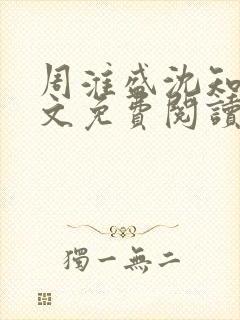 周淮盛沈知
文免費閱讀
獨一無二